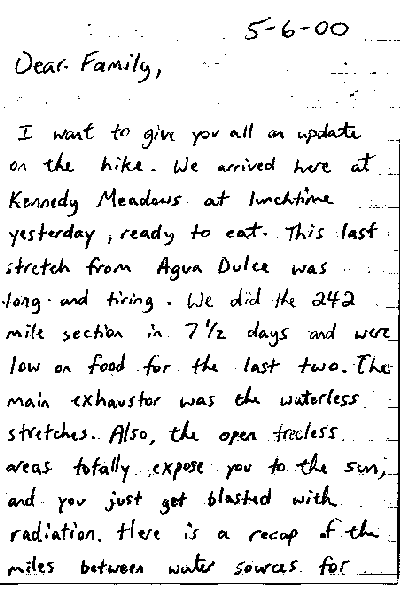 5-6-00
Dear Family,
I want to give you all an update
on the hike. We arrived here at
Kennedy Meadows at lunchtime
yesterday, ready to eat. This last
stretch from Agua Dulce was
long and tiring. We did the 242
mile section in 7 1/2 days and were
low on food for the last two. The
main exhaustor was the waterless
stretches. Also, the open treeless
areas totally expose you to the sun,
and you just get blasted with
radiation. Here is a recap of the
miles between water sources for